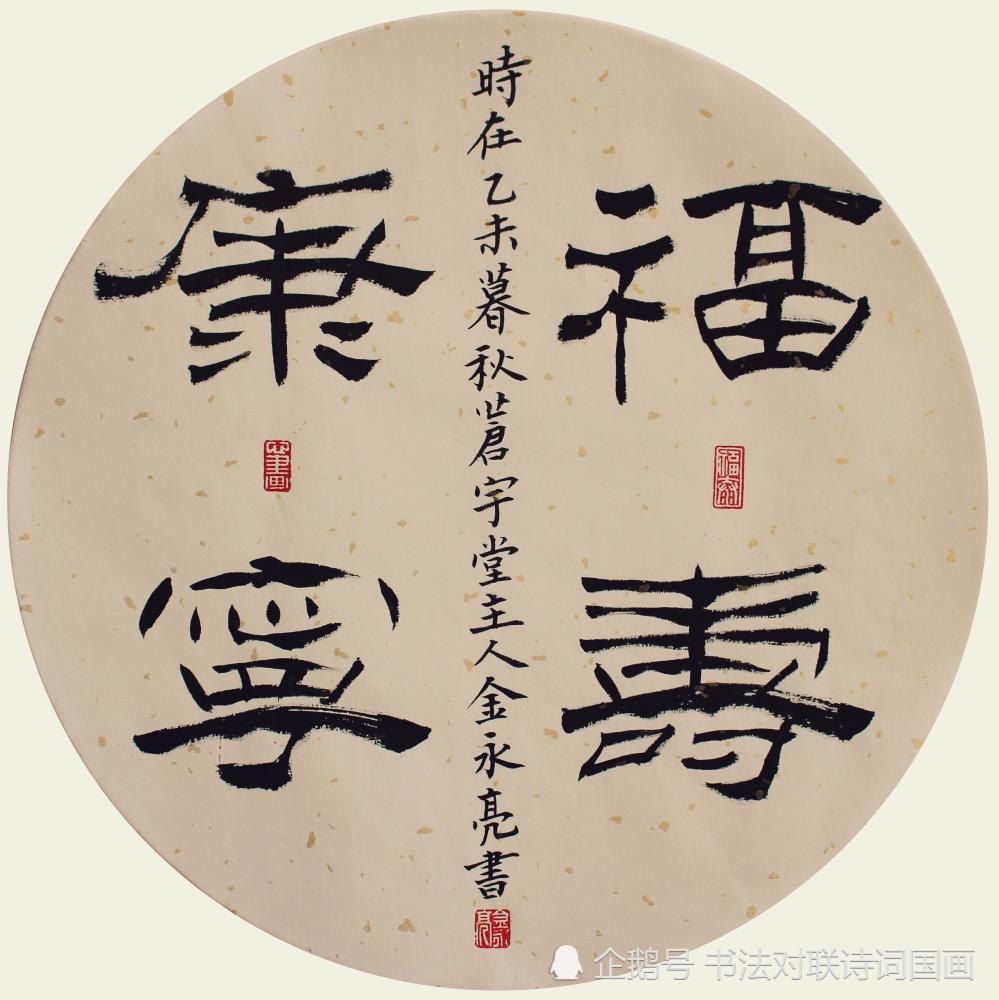 福壽
康寧
時在乙未暮秋蒼宇堂主人金永亮書
福泰
金永亮
企鹅号 书法对联诗词国画